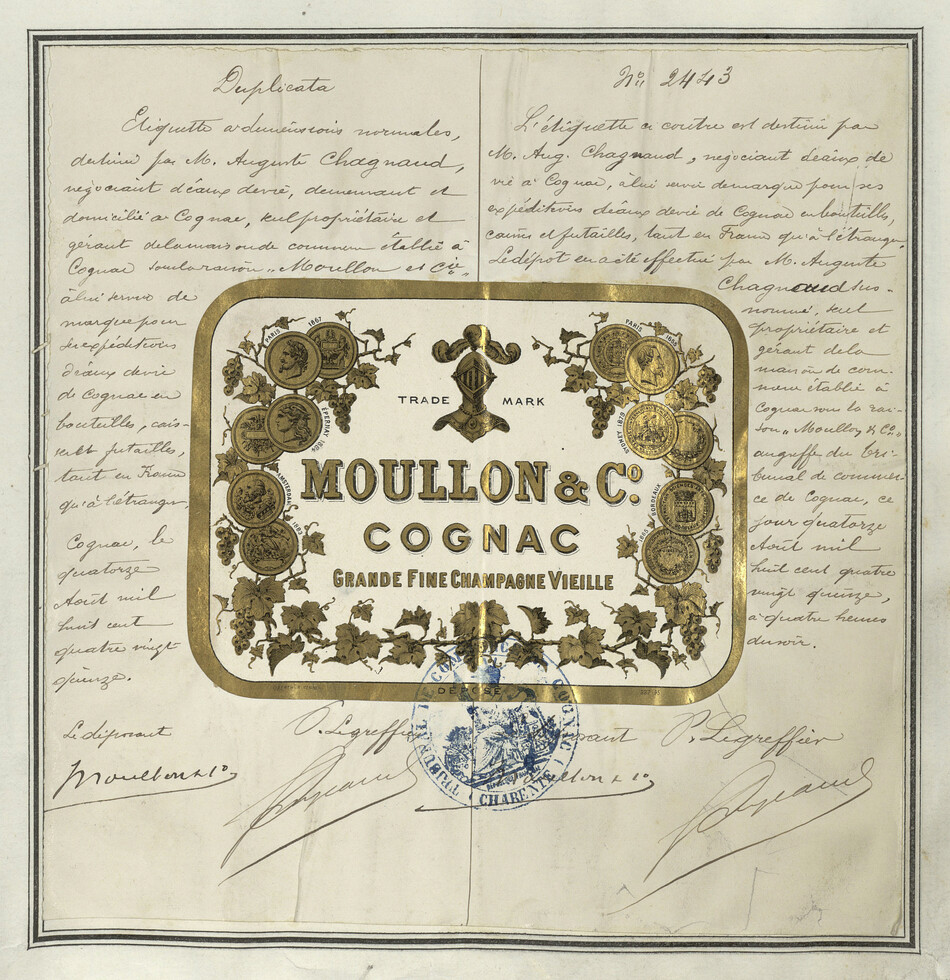 Duplicata
Etiquette a dimensions normales,
destiné par M. Auguste Chagnaud,
négociant d'eaux de vie, demeurant et
domicilié à Cognac, seul propriétaire et
gérant de la maison de commerce établie à
Cognac sous la raison „Moullon et Cie"
à lui servir de
marque pour
ses expéditions
d'eaux de vie
de Cognac en
bouteilles, cais-
ses et futailles,
tant en France
qu'à l'étranger,
Cognac, le
quatorze
Août mil
huit cent
quatre vingt
quinze.
Le déposant
P. Le greffier
Moullon & Co
No 2443
L'étiquette ci contre est destiné par
M. Aug. Chagnaud, négociant d'eaux de
vie à Cognac, à lui servir de marque pour ses
expéditions d'eaux de vie de Cognac en bouteilles,
caisses et futailles, tant en France qu'à l'étranger.
Le dépôt en a été effectué par M. Auguste
Chagnaud sus-
nommé, seul
propriétaire et
gérant de la
maison de com-
merce établie à
Cognac sous la rai-
son „Moullon & Co"
au greffe du Tri-
bunal de commer-
ce de Cognac, ce
jour quatorze
Août mil
huit cent quatre
vingt quinze,
à quatre heures
du soir.
P. Le greffier
Moullon & Co
PARIS 1867
PARIS
ÉPERNAY
AMSTERDAM 1883
SYDNEY 1879
BORDEAUX
TRADE MARK
MOULLON & Co.
COGNAC
GRANDE FINE CHAMPAGNE VIEILLE
DÉPOSÉ
TRIBUNAL DE COMMERCE COGNAC
CHARENTE